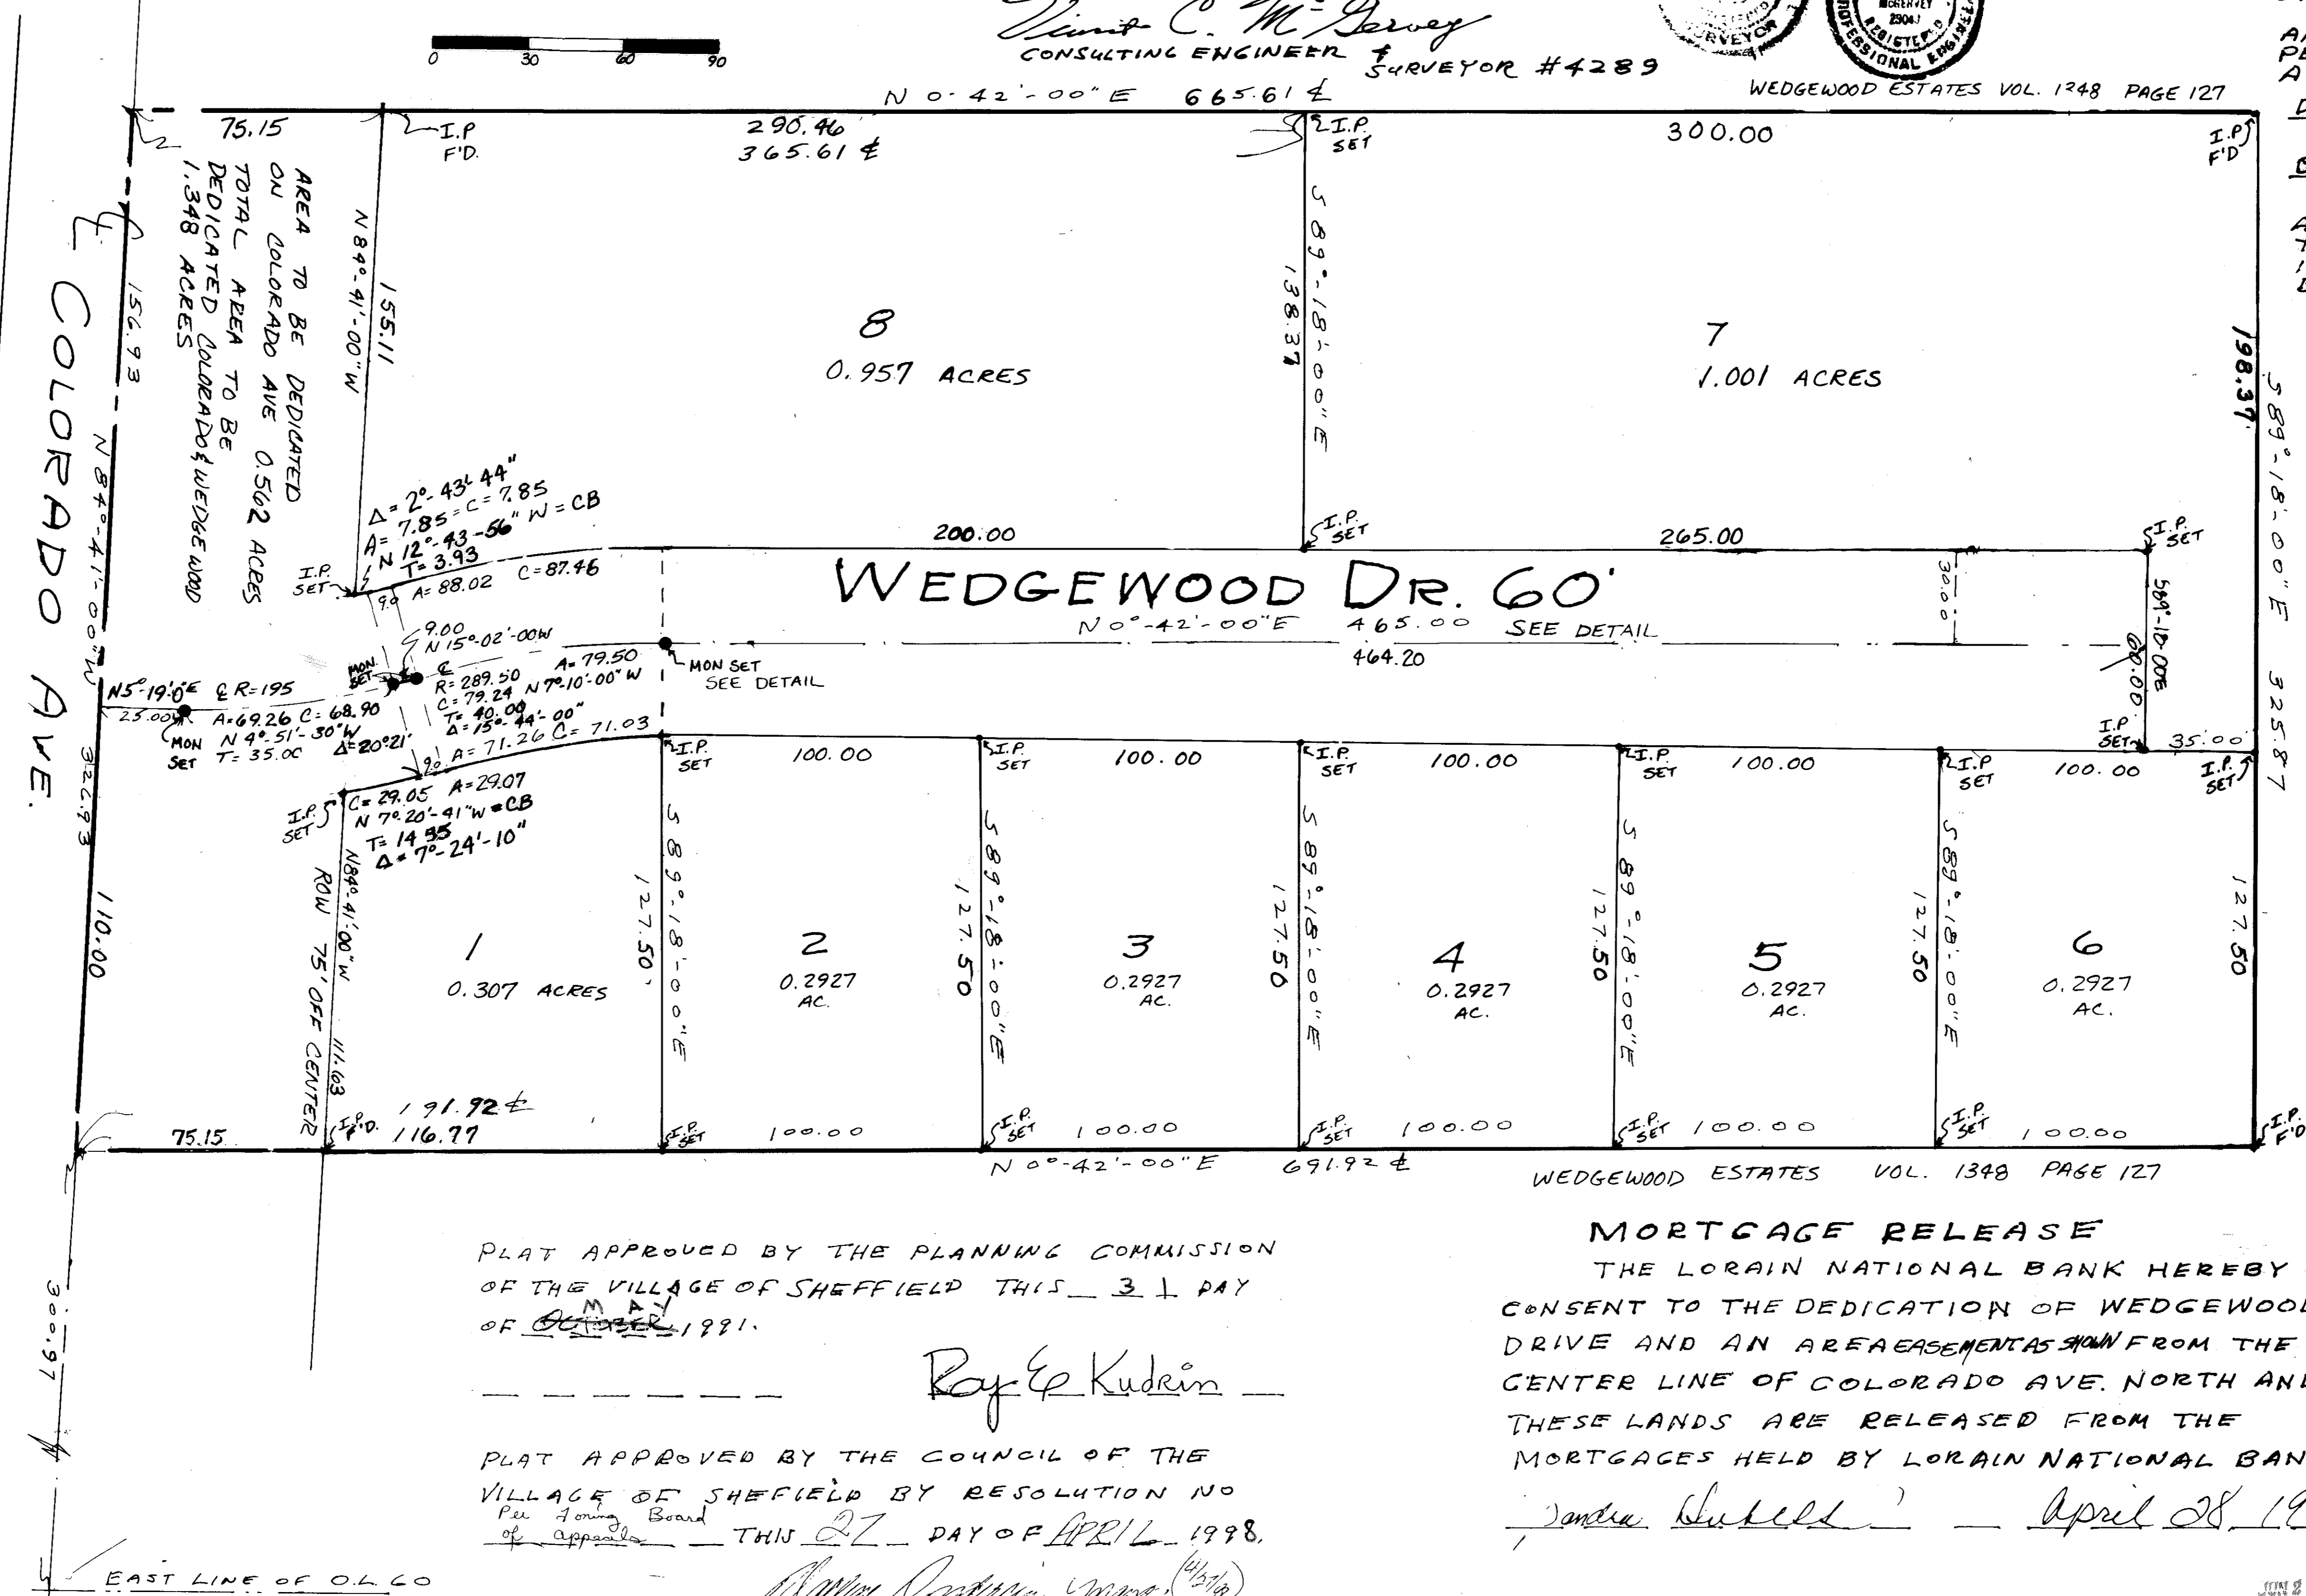 0 30 60 90
Vincent C. McGervey
CONSULTING ENGINEER &
SURVEYOR #4289
SURVEYOR
McGERVEY
29043
REGISTERED
PROFESSIONAL ENGINEER
N 0-42'-00"E 665.61 ℄
WEDGEWOOD ESTATES VOL. 1248 PAGE 127
75.15
I.P
F'D.
290.46
365.61 ℄
I.P.
SET
300.00
I.P
F'D
AREA TO BE DEDICATED
ON COLORADO AVE 0.562 ACRES
TOTAL AREA TO BE
DEDICATED COLORADO & WEDGEWOOD
1.348 ACRES
℄ COLORADO AVE.
156.93
N 84°-41'-00"W 322.93
110.00
300.97
N 84°-41'-00"W
155.11
8
0.957 ACRES
S 89°-18'-00"E
138.37
7
1.001 ACRES
198.37
S 89°-18'-00"E 325.87
Δ= 2°-43'-44"
A= 7.85 = C = 7.85
N 12°-43-56" W = CB
T= 3.93
I.P.
SET
9.0
A= 88.02 C= 87.46
200.00
I.P.
SET
265.00
I.P.
SET
WEDGEWOOD DR. 60'
N 0°-42'-00"E 465.00 SEE DETAIL
464.20
30.00
S89°-18-00E
60.00
9.00
N 15°-02'-00W
MON.
SET
℄
R= 289.50
A= 79.50
C= 79.24 N 7°-10'-00" W
T= 40.00
Δ= 15°-44'-00"
MON SET
SEE DETAIL
N5°-19'0"E ℄ R=195
25.00
A=69.26 C= 68.90
N 4°-51'-30"W
T= 35.00 Δ=20°21'
MON
SET
9.0 A= 71.26 C= 71.03
I.P.
SET
C= 29.05 A=29.07
N 7°-20'-41"W = CB
T= 14.55
Δ= 7°-24'-10"
I.P.
SET
100.00
I.P.
SET
100.00
I.P.
SET
100.00
I.P.
SET
100.00
I.P
SET
100.00
I.P
SET
35.00
I.P.
SET
N84°-41'-00"W 111.63
ROW 75' OFF CENTER
1
0.307 ACRES
S 89°-18'-00"E
127.50'
2
0.2927
AC.
S 89°-18'-00"E
127.50
3
0.2927
AC.
S 89°-18'-00"E
127.50
4
0.2927
AC.
S 89°-18'-00"E
127.50
5
0.2927
AC.
S 89°-18'-00"E
127.50
6
0.2927
AC.
127.50
75.15
I.P.
F'D.
191.92 ℄
116.77
I.P.
SET
100.00
I.P.
SET
100.00
I.P.
SET
100.00
I.P.
SET
100.00
I.P.
SET
100.00
I.P
F'D
N 0°-42'-00"E 691.92 ℄
WEDGEWOOD ESTATES VOL. 1348 PAGE 127
PLAT APPROVED BY THE PLANNING COMMISSION
OF THE VILLAGE OF SHEFFIELD THIS 31 DAY
MAY
OF OCTOBER 1991.
Roy E Kudrin
PLAT APPROVED BY THE COUNCIL OF THE
VILLAGE OF SHEFIELD BY RESOLUTION NO
Per Zoning Board
of appeals THIS 27 DAY OF APRIL 1998.
(4/27/98)
MORTGAGE RELEASE
THE LORAIN NATIONAL BANK HEREBY
CONSENT TO THE DEDICATION OF WEDGEWOOD
DRIVE AND AN AREA EASEMENT AS SHOWN FROM THE
CENTER LINE OF COLORADO AVE. NORTH AND
THESE LANDS ARE RELEASED FROM THE
MORTGAGES HELD BY LORAIN NATIONAL BAN
Sandra April 28, 19
EAST LINE OF O.L. 60